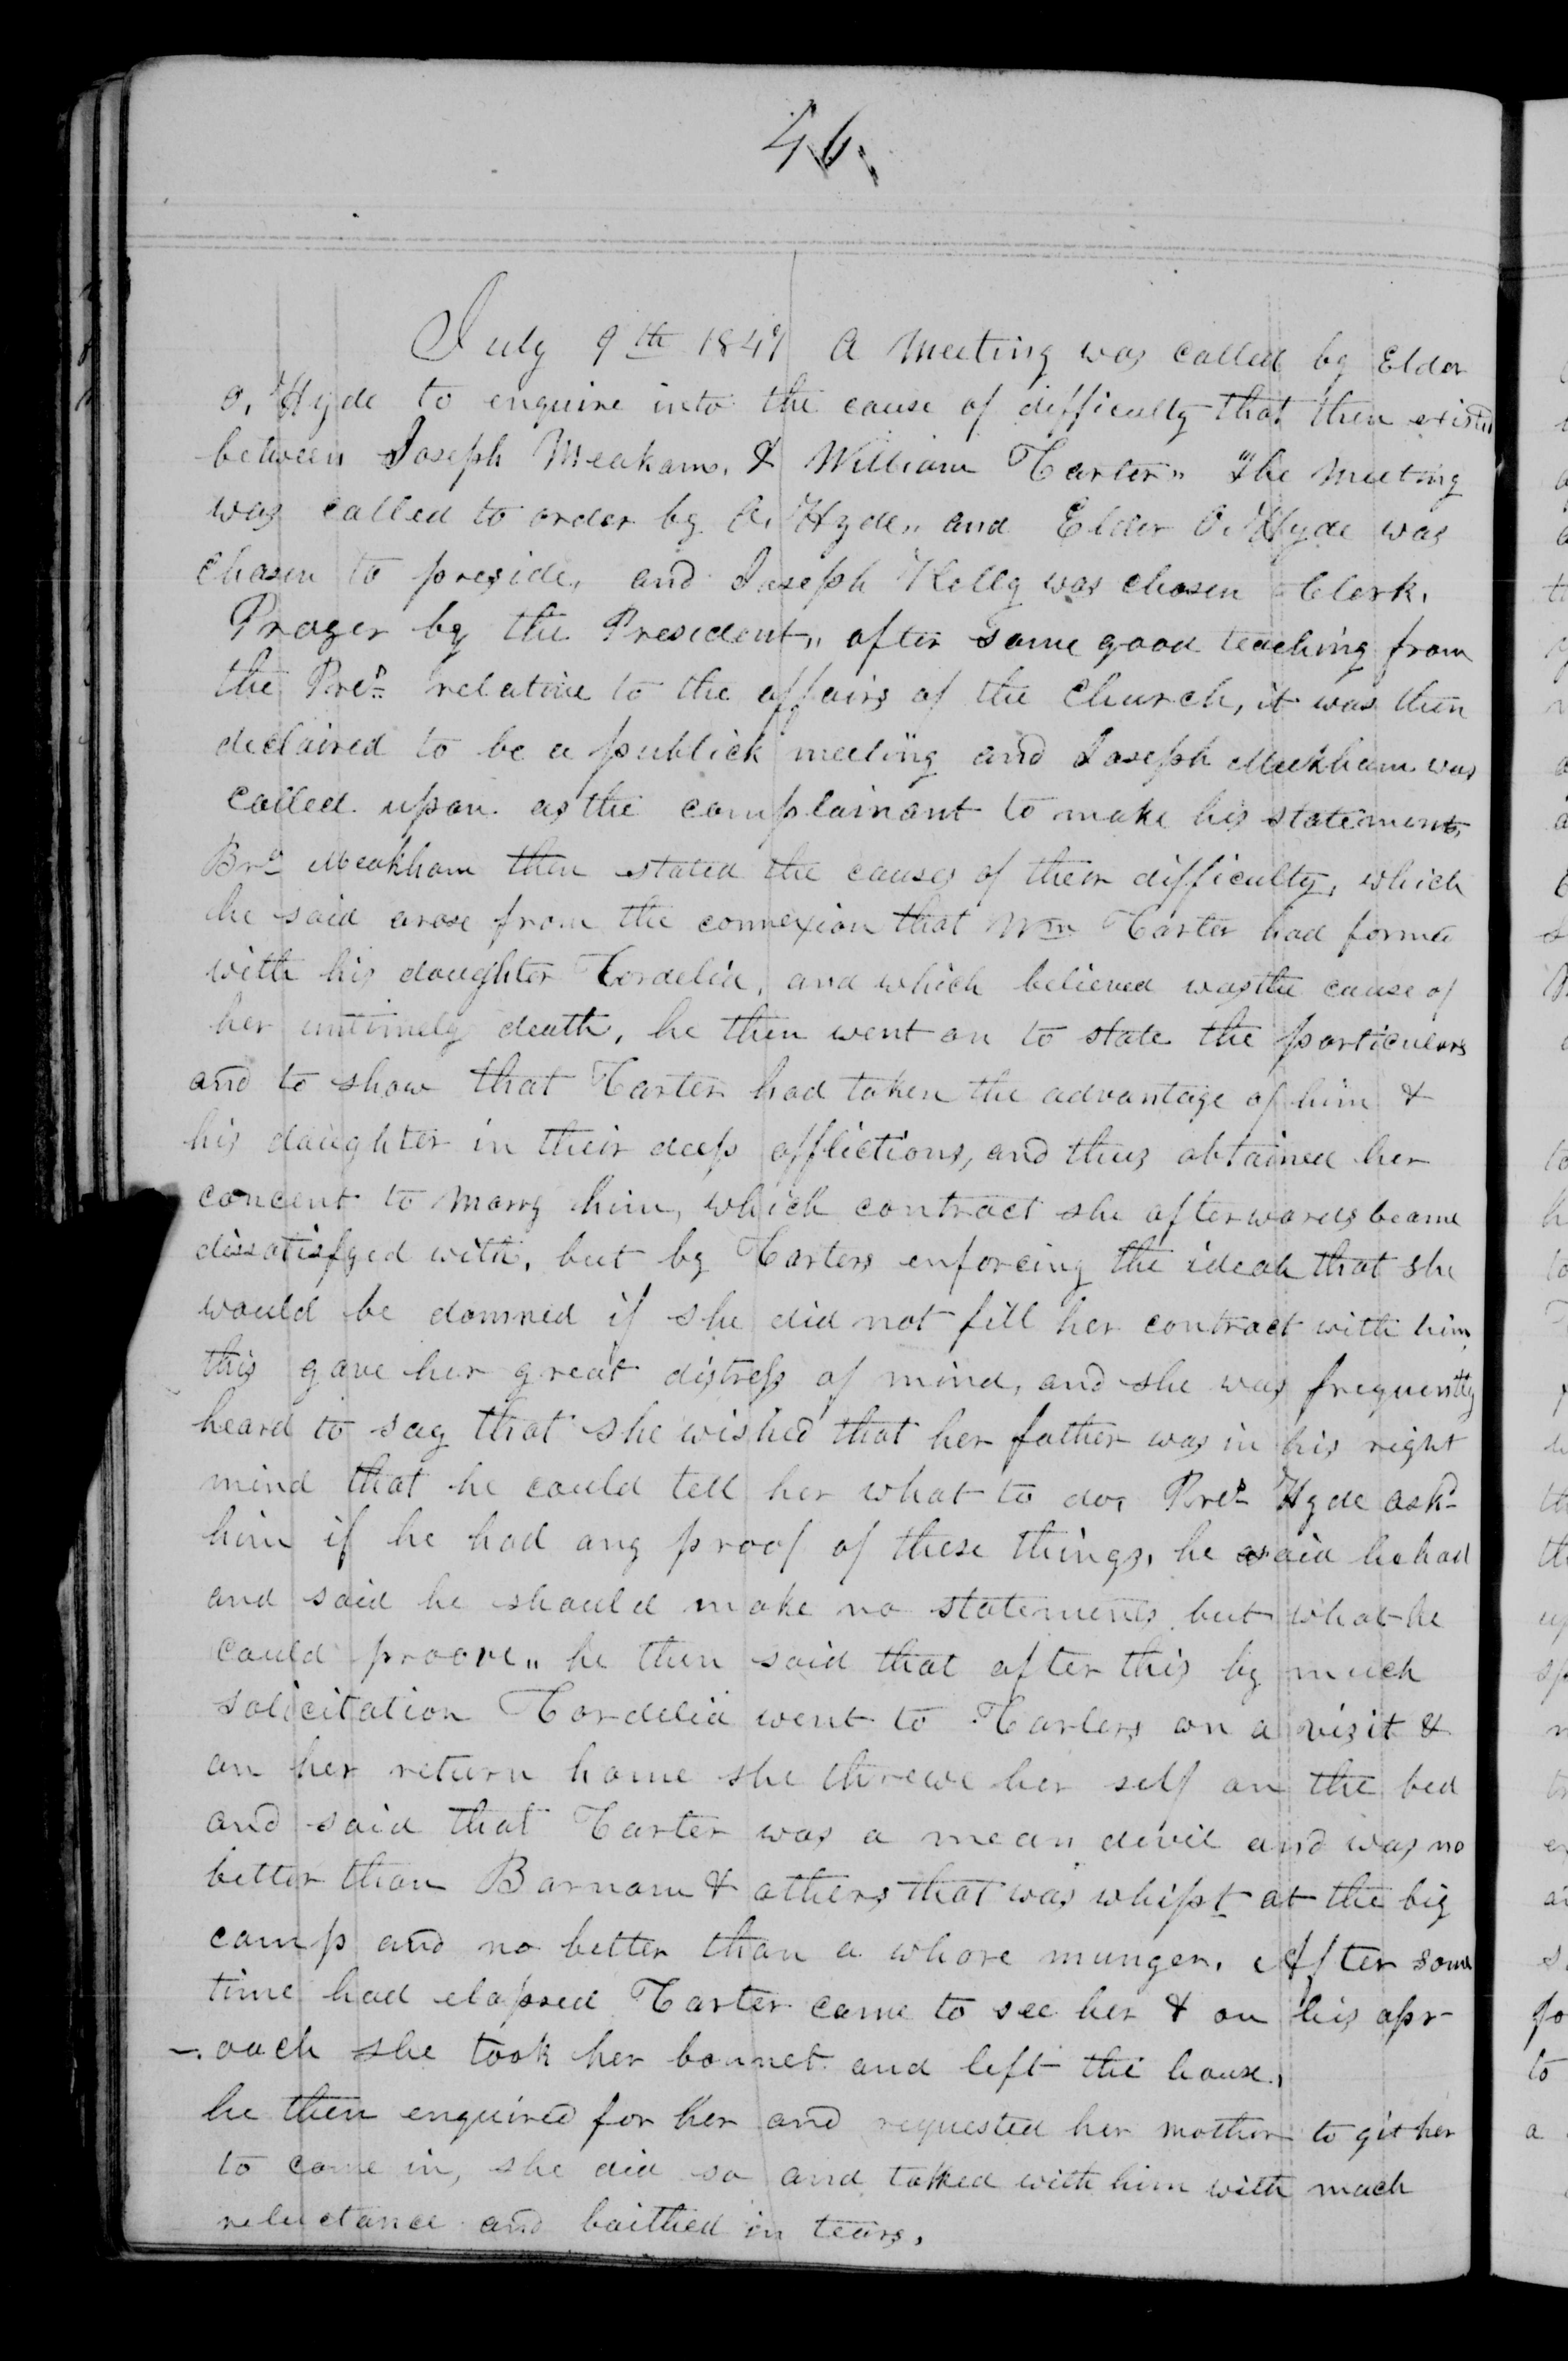 46.
July 9th 1847 A Meeting was called by Elder
O. Hyde to enquire into the cause of difficulty that then existed
between Joseph Meakham, & William Carter,, The Meeting
was called to order by O. Hyde,, and Elder O. Hyde was
chosen to preside, and Joseph Kelly was chosen Clerk.
Prayer by the President,, after some good teaching from
the Pres relative to the affairs of the Church, it was then
declaired to be a publick meeting and Joseph Meekham was
called upon as the complainant to make his statement,
Bro Meakham then stated the causes of their difficulty, which
he said arose from the connexion that Wm Carter had formed
with his daughter Cordelia, and which believed was the cause of
her untimely death, he then went on to state the particulars
and to show that Carter had taken the advantage of him &
his daughter in their deep afflictions, and thus obtained her
concent to marry him, which contract she afterwards became
dissatisfyed with, but by Carters enforcing the ideah that she
would be damned if she did not fill her contract with him,
this gave her great distress of mind, and she was frequently
heard to say that she wished that her father was in his right
mind that he could tell her what to do, Pres Hyde askd
him if he had any proof of these things, he said he had
and said he should make no statements but what he
could proove,, he then said that after this by much
solicitation Cordelia went to Carters on a visit &
on her return home she threwe her self on the bed
and said that Carter was a mean devil and was no
better than Barnam & others that was whipt at the big
camp and no better than a whore munger. After some
time had elapsed Carter came to see her & on his apr-
-oach she took her bonnet and left the house,
he then enquired for her and requested her mother to git her
to come in, she did so and talked with him with much
reluctance and baithed in tears.